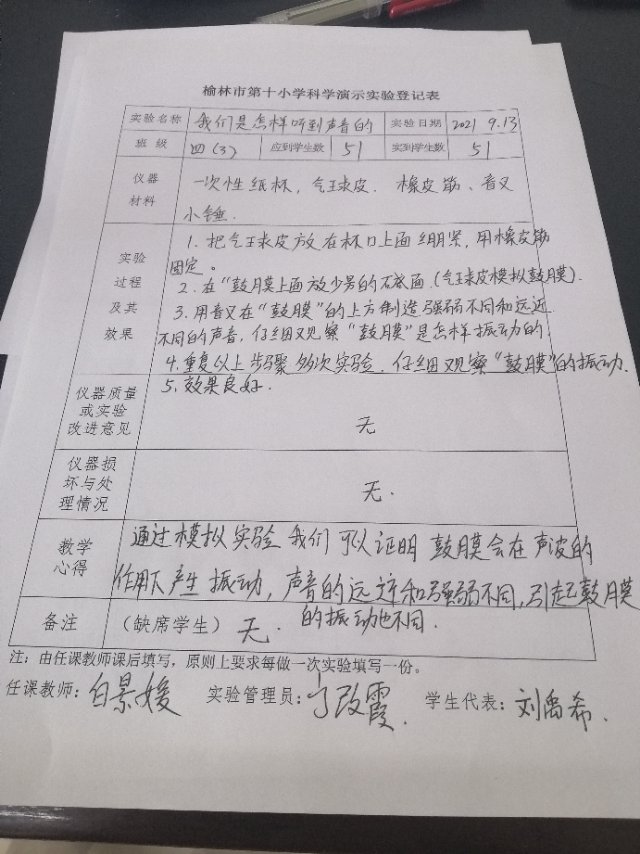 榆林市第十小学科学演示实验登记表
实验名称 我们是怎样听到声音的 实验日期 2021 9.13
班 级 四(3) 应到学生数 51 实到学生数 51
仪器 一次性纸杯，气球皮. 橡皮筋、音叉
材料 小锤.
1. 把气球皮放在杯口上面绷紧，用橡皮筋
实验 固定。
过程 2. 在“鼓膜上面放少另的石底面.(气球皮模拟鼓膜).
及其 3. 用音叉在“鼓膜”的上方制造强弱不同和远近
效果 不同的声音，仔细观察“鼓膜”是怎样振动的
4. 重复以上步骤多次实验. 仔细观察“鼓膜”的振动.
5. 效果良好.
仪器质量
或实验
改进意见 无
仪器损
坏与处 无.
理情况
教学 通过模拟实验我们可以证明鼓膜会在声波的
心得 作用下产生振动，声音的远近和强弱不同，引起鼓膜
的振动也不同.
备注 （缺席学生）无.
注：由任课教师课后填写，原则上要求每做一次实验填写一份。
任课教师：白景媛 实验管理员：丁改霞. 学生代表：刘禹希.